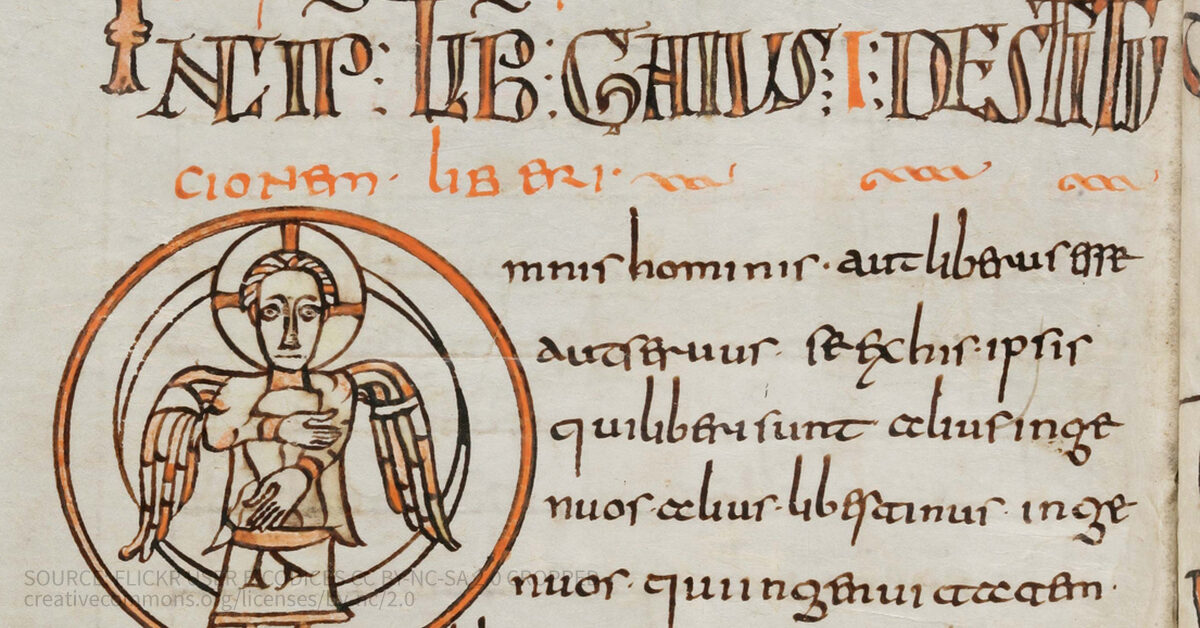 INCIP: LIB: GAIUS: I: DESTITU
CIONEM · LIBERI ·
mnis hominis · aut liberus esse
aut seruus · se ex his · ipsis
qui liberi sunt alius inge
nuos · alius · libertinus · inge
nuos · qui ingenui
SOURCE: FLICKR USER E-CODICES CC BY-NC-SA 2.0 CROPPED
creativecommons.org/licenses/by-nc/2.0